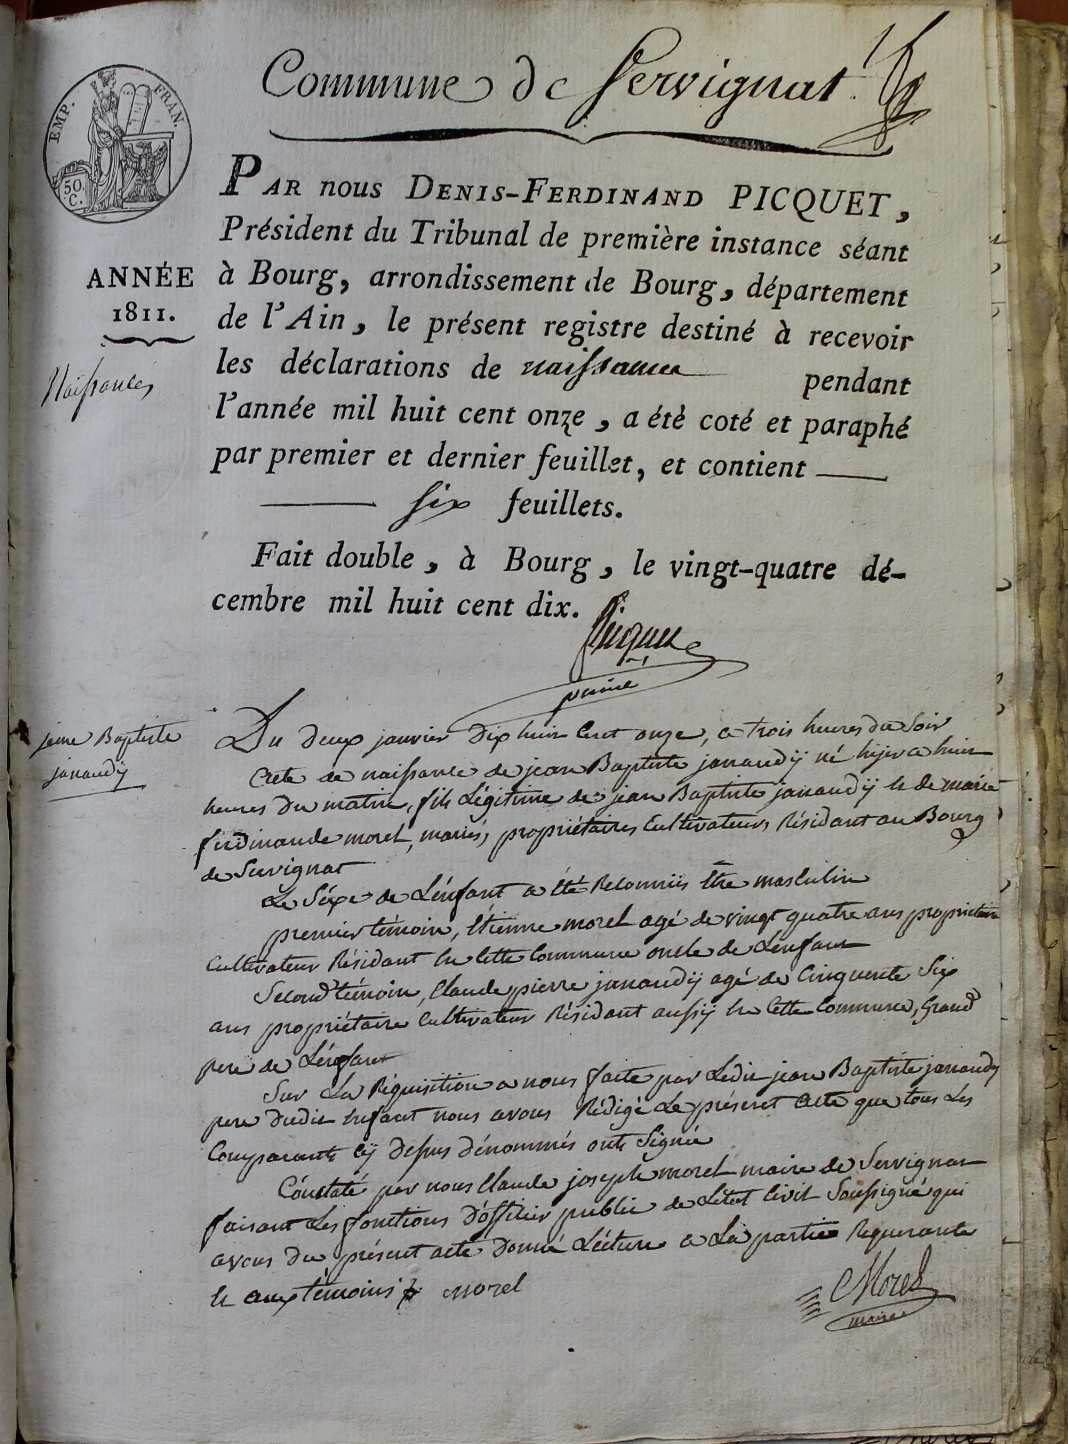 Commune de Servignat
EMP. FRAN.
50.
C.
PAR nous DENIS-FERDINAND PICQUET,
Président du Tribunal de première instance séant
ANNÉE
à Bourg, arrondissement de Bourg, département
1811.
de l'Ain, le présent registre destiné à recevoir
Naissances
les déclarations de naissances pendant
l'année mil huit cent onze, a étè coté et paraphé
par premier et dernier feuillet, et contient
six feuillets.
Fait double, à Bourg, le vingt-quatre dé-
cembre mil huit cent dix.
Picquet
jeane Baptiste
janaudÿ
Du deux janvier dix huit Cent onze, a trois heures du Soir
Acte de naissance de jean Baptiste janaudÿ né hyer a huit
heures du matin, fils Légitime de jean Baptiste janaudÿ et de marie
ferdinande morel, mariés, propriétaires Cultivateurs Résidant au Bourg
de Servignat
Le Séxe de L'énfant a été Reconnüs Etre masculin
premier témoin, Etienne morel agé de vingt quatre ans propriétaire
Cultivateur Résidant En Cette Commune oncle de L'énfant
Second témoin, Claude pierre janaudÿ agé de Cinquante Six
ans propriétaire Cultivateur Résidant aussÿ En Cette Commune, Grand
pere de L'énfant
Sur La Réquisition a nous faite par Ledit jean Baptiste janaudy
pere dudit Enfant nous avons Rédigé Le présent Acte que tous Les
Comparants cÿ dessus dénommés onts Signé
Constaté par nous Claude joseph morel maire de Servignat
faisant Les fonctions D'officier public de L'etat Civil Soussigné qui
avons du présent acte donné Lécture a La partie Requerante
Et aux témoins morel
Morel
maire